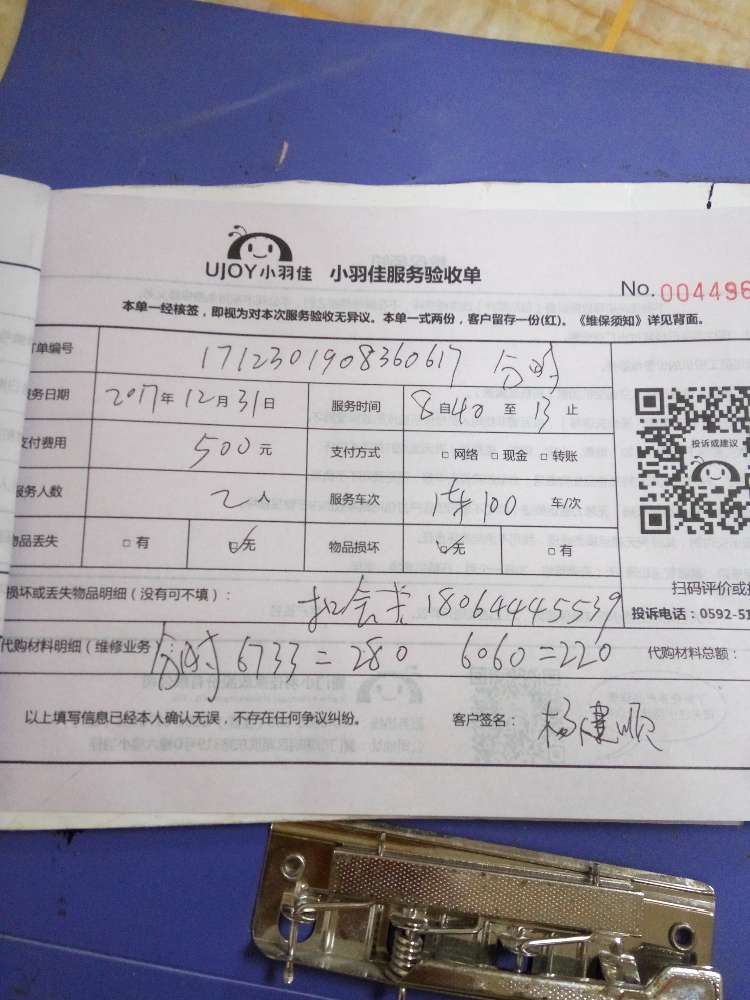 UJOY小羽佳 小羽佳服务验收单
No.004496
本单一经核签，即视为对本次服务验收无异议。本单一式两份，客户留存一份(红)。《维保须知》详见背面。
订单编号 1712301908360617 合时
务日期 2017年12月31日 服务时间 8自40至13止
支付费用 500元 支付方式 □网络 □现金 □转账
投诉或建议
服务人数 2人 服务车次 1车100 车/次
物品丢失 □有 □无 物品损坏 □无 □有
扫码评价或
损坏或丢失物品明细（没有可不填）： 扣会员18064445539
投诉电话：0592-51
代购材料明细（维修业务 合时 6733=280 6060=220 代购材料总额：
以上填写信息已经本人确认无误，不存在任何争议纠纷。 客户签名： 杨健顺